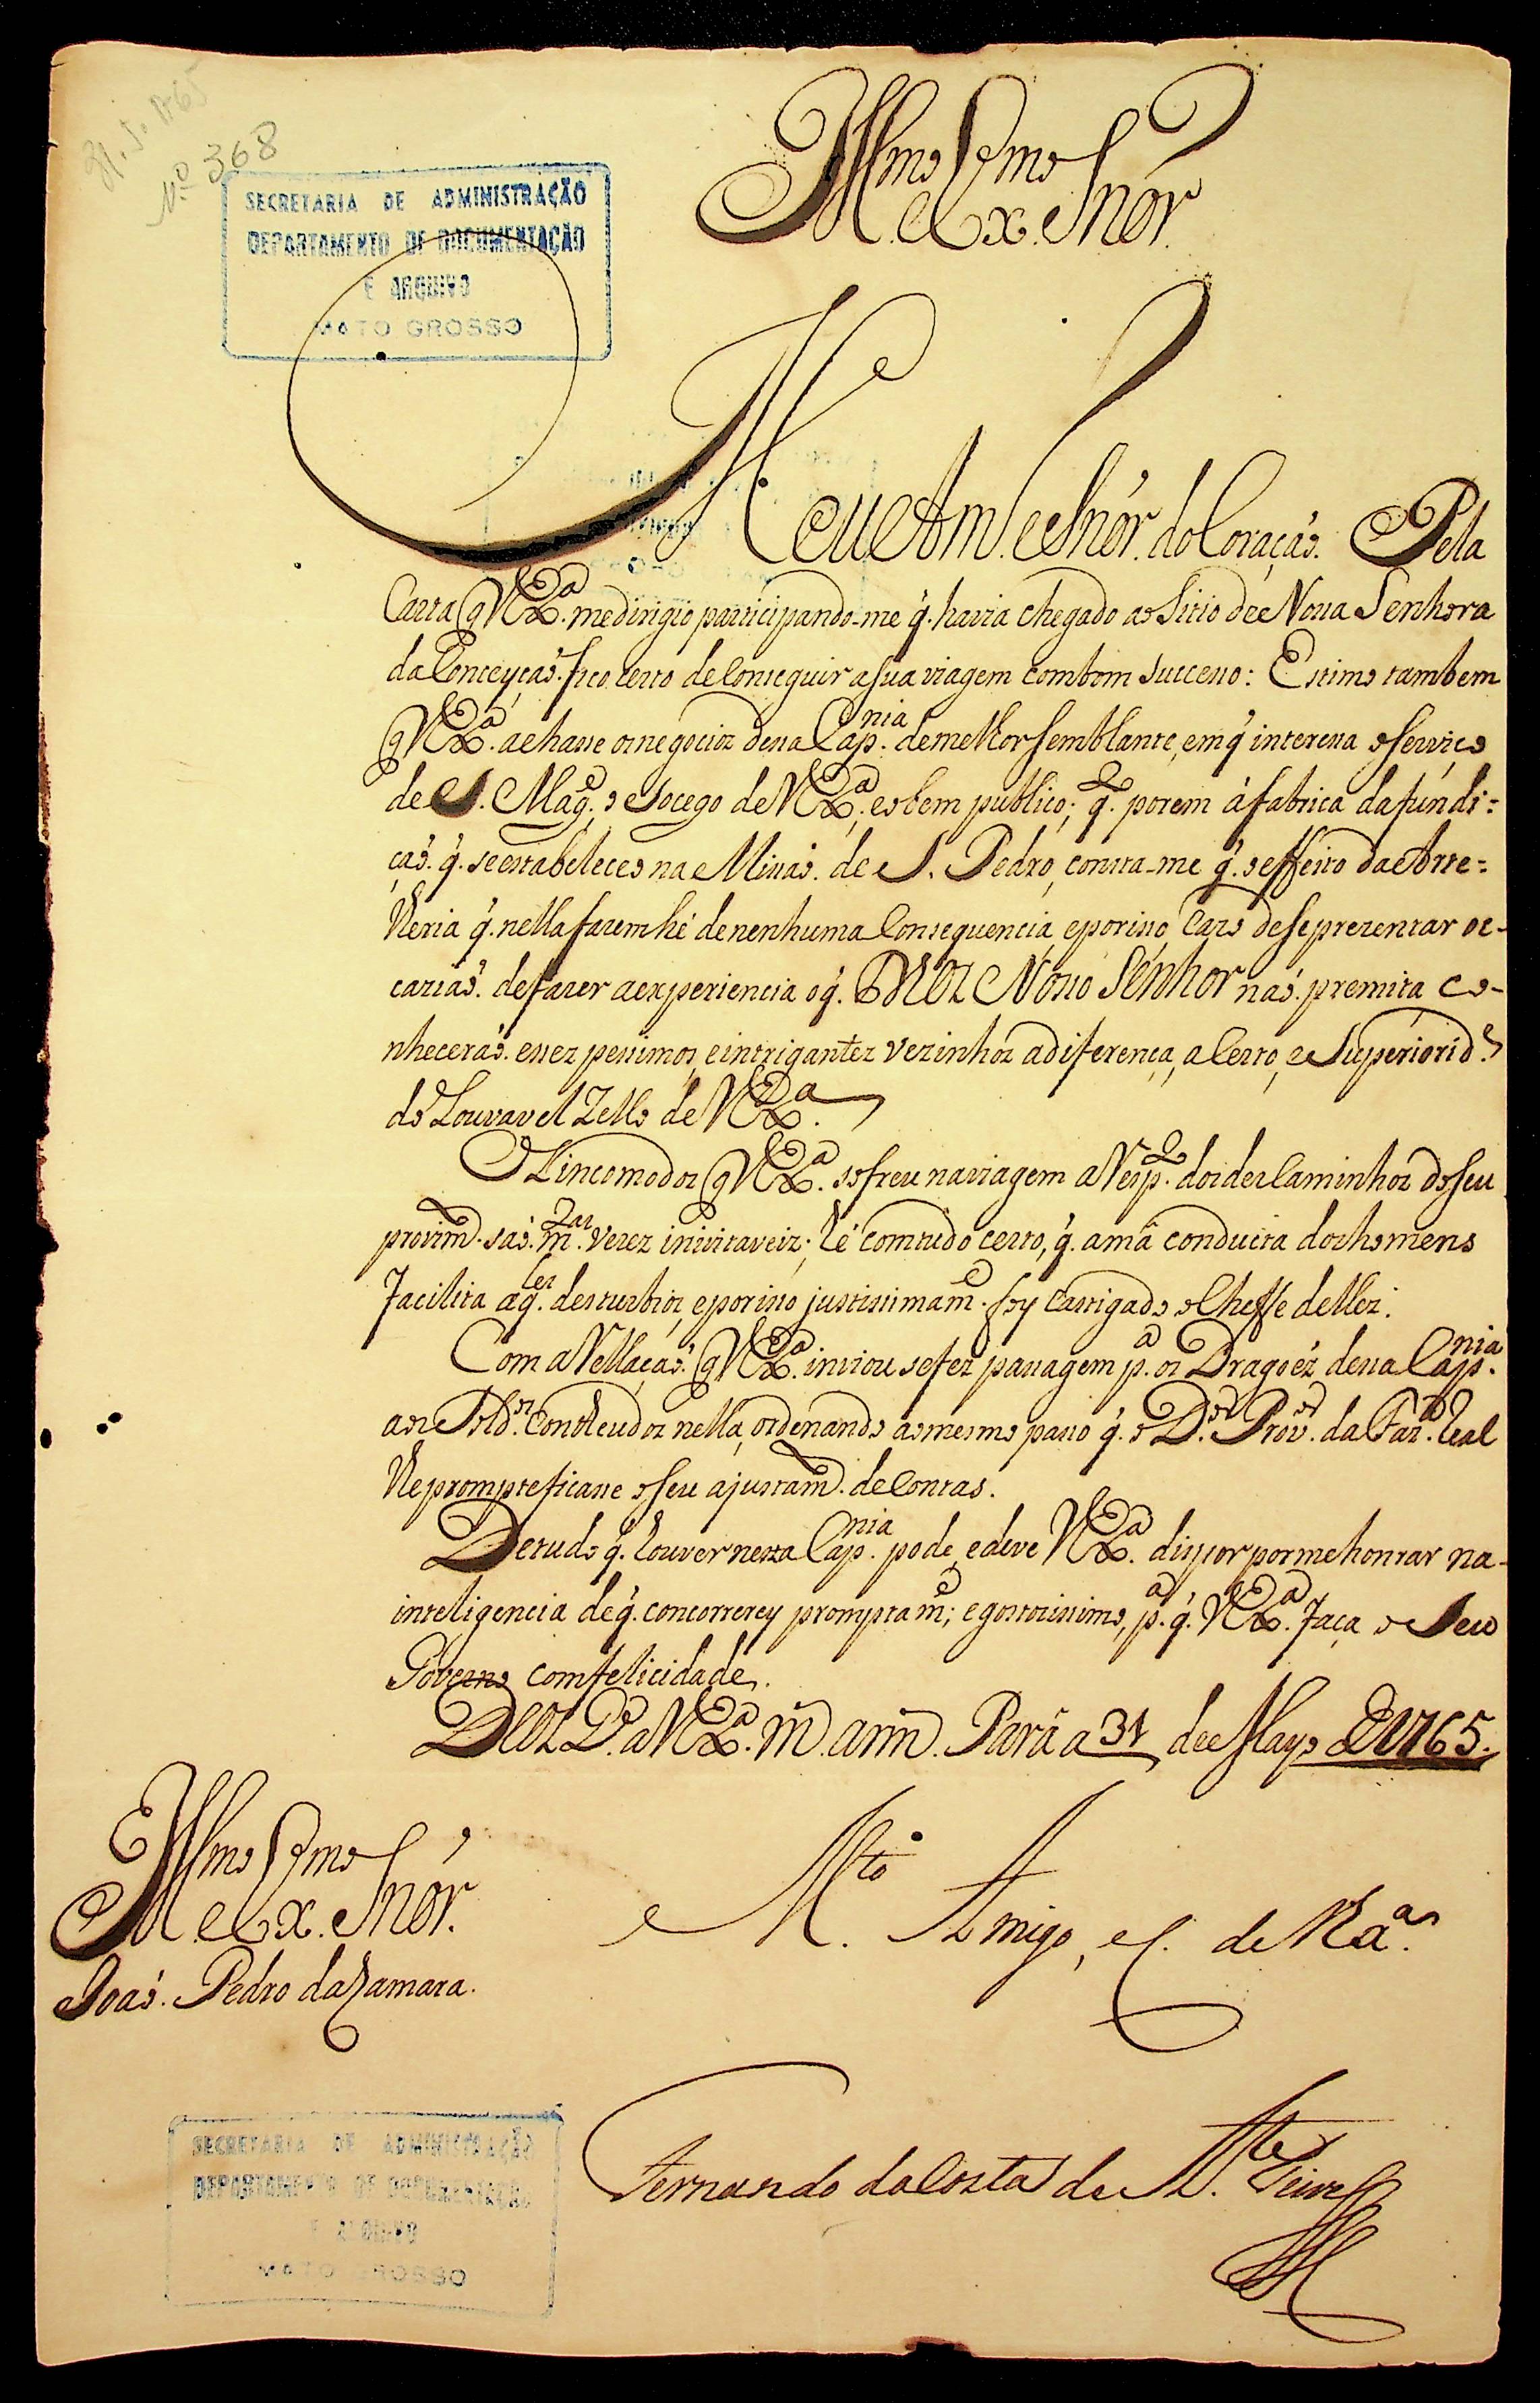 31.5.1765
Nº 368
SECRETARIA DE ADMINISTRAÇÃO
DEPARTAMENTO DE DOCUMENTAÇÃO
E ARQUIVO
MATO GROSSO
Illmo. e Exmo. Snor.
Meu Am. e Snór. do Coraçaõ. Pela
Carta q̃ V. Exa. me dirigio participando-me q̃. havia chegado ao Sitio de Nossa Senhora
da Conceyçaõ. fico certo de conseguir a sua viagem com bom successo: Estimo tambem
q̃ V. Exa. achasse os negocios dessa Capnia. de melhor semblante, em q̃ interessa o serviço
de S. Mage., o Socego de V. Exa., e o bem publico; qto. porem á fabrica da fundi=
çaõ. q̃. se estabeleceo na Missaõ. de S. Pedro, consta-me q̃. o effeito da Arte=
lheria q̃. nella fazem hé de nenhuma consequencia, e por isso, cazo de se prezentar oc-
caziaõ. de fazer a experiencia o q̃. DEOS Nosso Senhor naõ. premita, co-
nheceráõ. esses pessimos, e intrigantes vezinhos a diferença, acerto, e Superiorid.e
do Louvavel Zello de V. Exa.
Os incomodos q̃ V. Exa. sofreu na viagem a Respto. dos descaminhos do seu
provimto. saõ. mtas. vezes inivitaveis; hé comtudo certo, q̃. a má conducta dos homens
facilita aqles. desturbios, e por isso justissimame. foy castigado o Cheffe delles.
Com a Rellaçaõ. q̃ V. Exa. inviou se fez passagem pa. os Dragoẽs dessa Capnia.
aos Soldos. contheudos nella, ordenando ao mesmo passo q̃. o Dor. Provor. da Faza. Real
Reprompteficasse o seu ajustamto. de contas.
De tudo q̃. houver nessa Capnia. pode, e deve V. Exa. dispor por me honrar na-
inteligencia de q̃. concorrerey promptame., e gostozissimo, pa. q̃. V. Exa. faça o Seu
Governo com felicidade.
DEOS Ge. a V. Exa. ms. anns. Pará a 31 de Mayo de 1765.
Illmo. e Exmo. Snór.
Joaõ. Pedro da Camara.
Mto. Amigo, e C. de V. Exa.
Fernando da Costa de Atte. Teive
SECRETARIA DE ADMINISTRAÇÃO
DEPARTAMENTO DE DOCUMENTAÇÃO
E ARQUIVO
MATO GROSSO